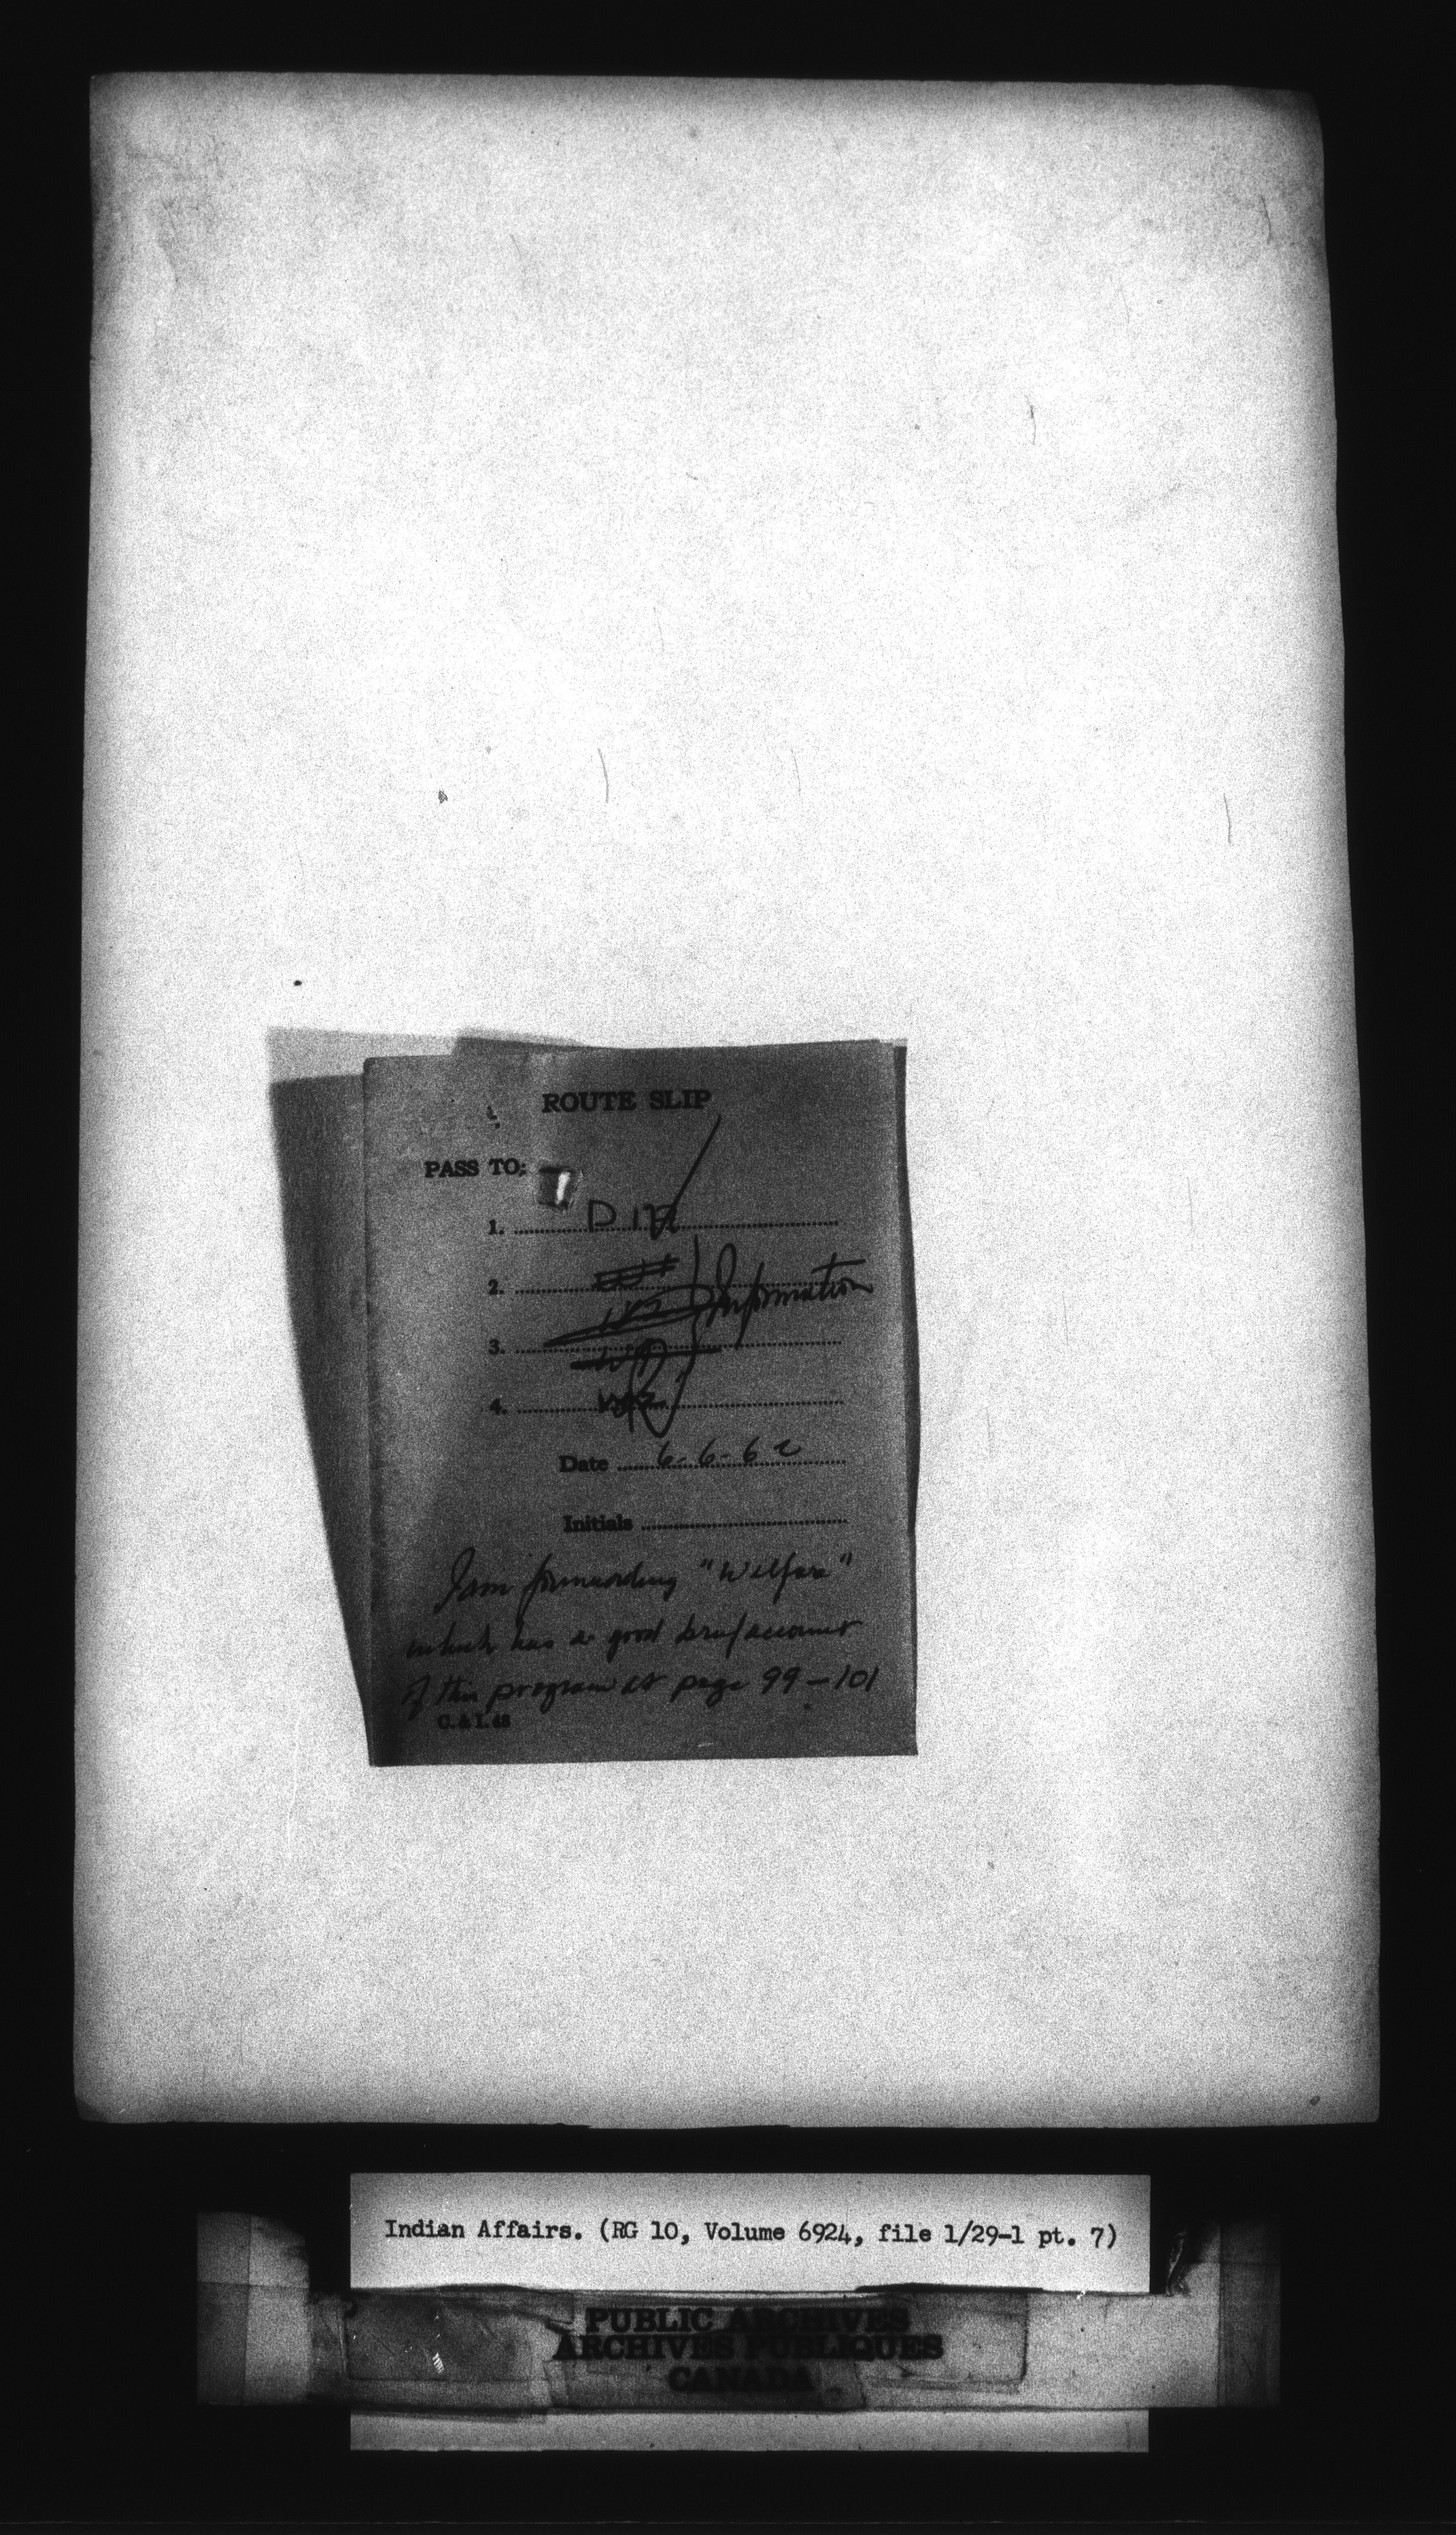 ROUTE SLIP
PASS TO:
1. DIR
2.
Information
3.
4.
Date 6-6-62
Initials
I am forwarding "Welfare"
which has a good brief account
of this program at page 99-101
C. & I. 48
Indian Affairs. (RG 10, Volume 6924, file 1/29-1 pt. 7)
PUBLIC ARCHIVES
ARCHIVES PUBLIQUES
CANADA